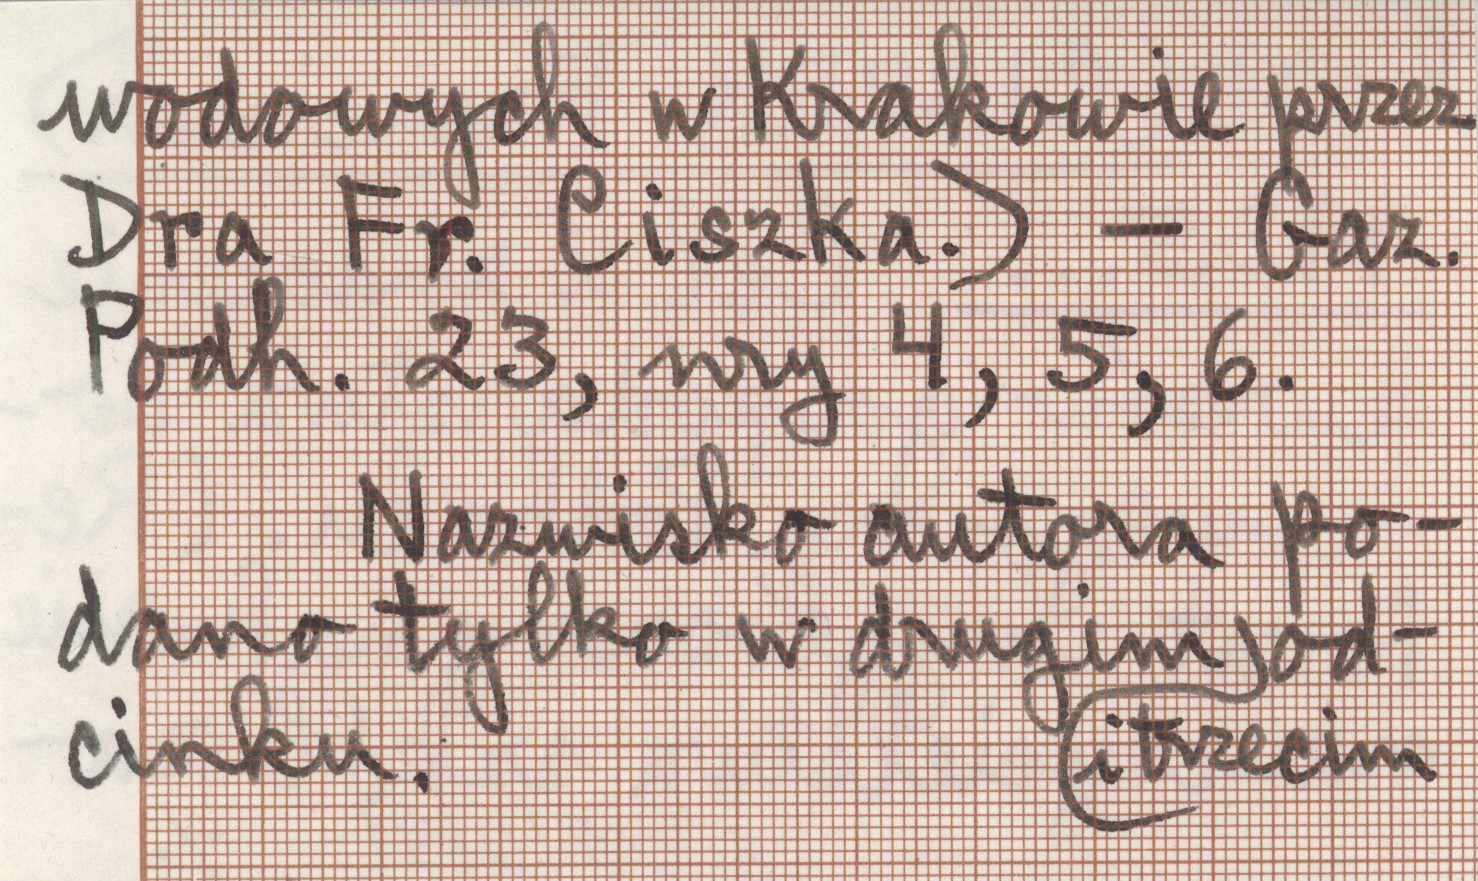 wodowych w Krakowie przez
Dra Fr. Ciszka.) – Gaz.
Podh. 23, nry 4, 5, 6.
Nazwisko autora po-
dano tylko w drugim od-
cinku. i trzecim